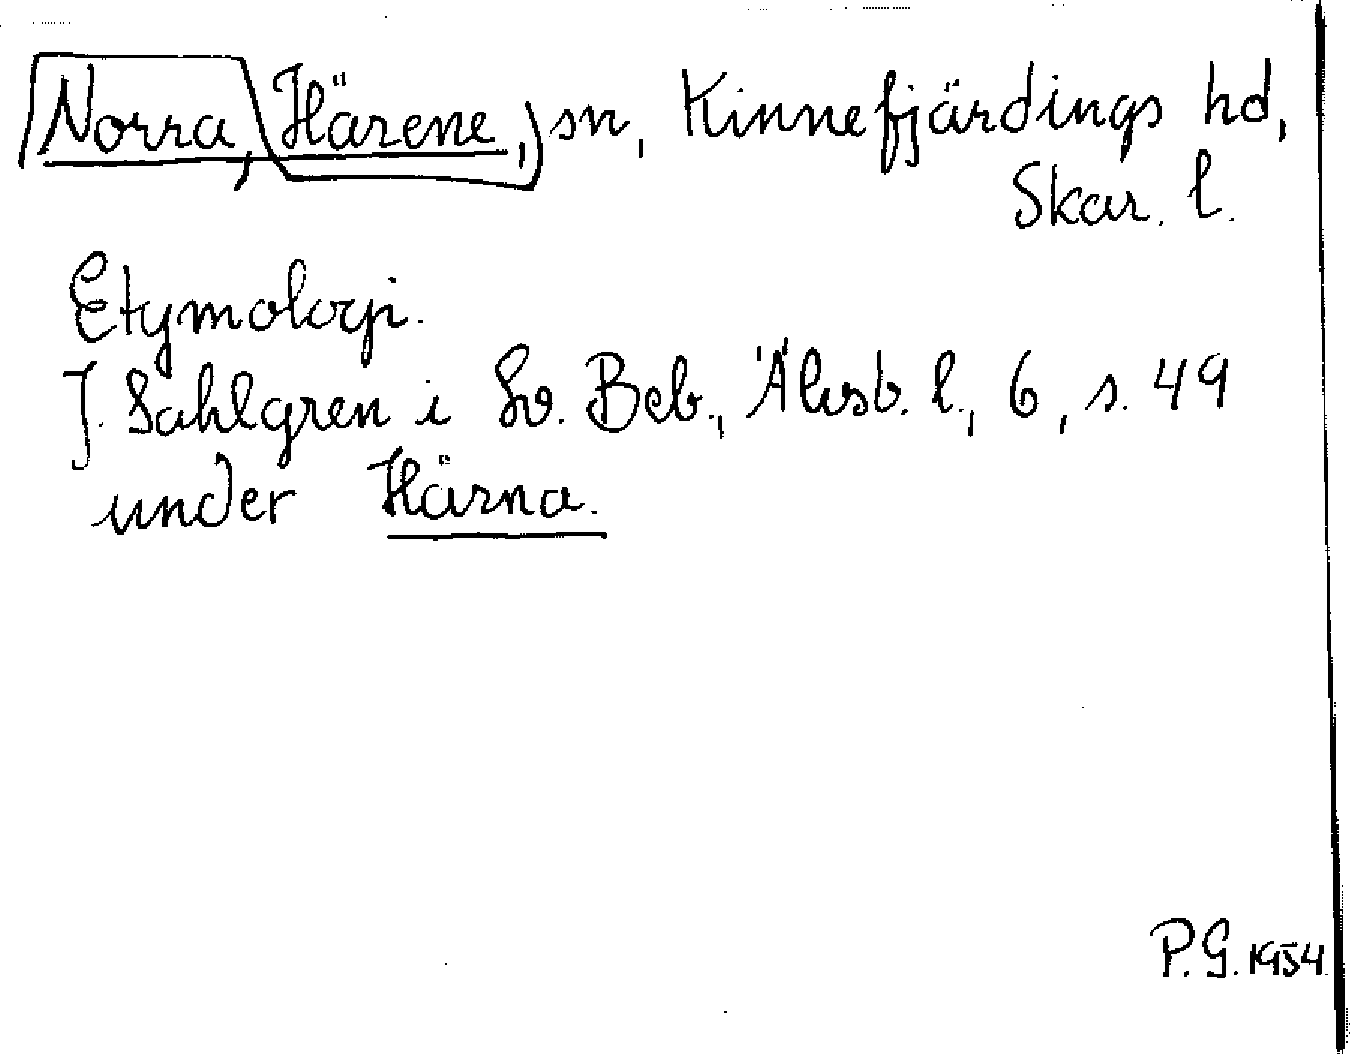 Norra, Härene, sn, Kinnefjärdings hd,
Skar. l.
Etymologi.
J. Sahlgren i Sv. Beb., Älvsb. l., 6, s. 49
under Härna.
P.G. 1954